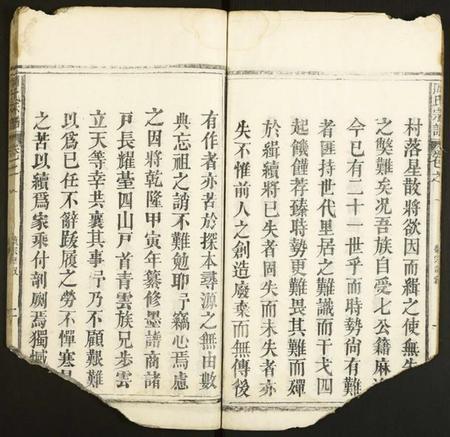 氏宗譜
卷之一
村落星散將欲因而緝之使無失
之獘難矣况吾族自受七公籍麻
今已有二十一世乎而時勢尚有難
者匪持世代里居之難識而干戈四
起饑饉荐臻時勢更難甚其難而殫
於緝續將已失者固失而未失者亦
失不惟前人之創造廢棄而無傳後
有作者亦苦於探本尋源之無由數
典忘祖之誚不難勉耶予竊心焉慮
之因將乾隆甲寅年纂修墨譜商諸
戸長耀蓥四山戸首青雲族兄步雲
立天等幸共襄其事予乃不顧艱難
以為已任不辭跋履之勞不憚寒暑
之苦以續爲家乘付剞劂焉獨撼